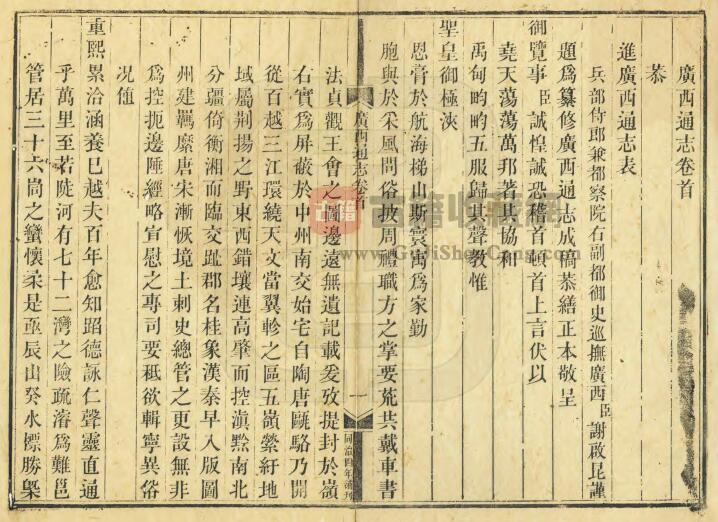 廣西通志卷首
恭
進廣西通志表
兵部侍郎兼都察院右副都御史巡撫廣西臣謝啟昆謹
題爲纂修廣西通志成稿恭繕正本敬呈
御覽事臣誠惶誠恐稽首頓首上言伏以
堯天蕩蕩萬邦著其協和
禹甸畇畇五服歸其聲教惟
聖皇御極浹
恩膏於航海梯山斯寰寓爲家勤
胞與於采風問俗披周禮職方之掌要荒共戴車書
廣西通志卷首
一
同治四年補刊
法貞觀王會之圖邊遠無遺記載爰攷提封於嶺
右實爲屏蔽於中州南交始宅自陶唐甌駱乃開
從百越三江環繞天文當翼軫之區五嶺縈紆地
域屬荆揚之野東西錯壤連高肇而控滇黔南北
分疆倚衡湘而臨交趾郡名桂象漢秦早入版圖
州建羈縻唐宋漸恢境土刺史總管之更設無非
爲控扼邊陲經略宣慰之專司要秪欲輯寧異俗
况値
重熙累洽涵養已越夫百年愈知昭德詠仁聲靈直通
乎萬里至若陡河有七十二灣之險疏濬爲難邕
管居三十六峝之蠻懷柔是亟辰山癸水標勝槩
古籍收藏網
www.GujiShoCang.com